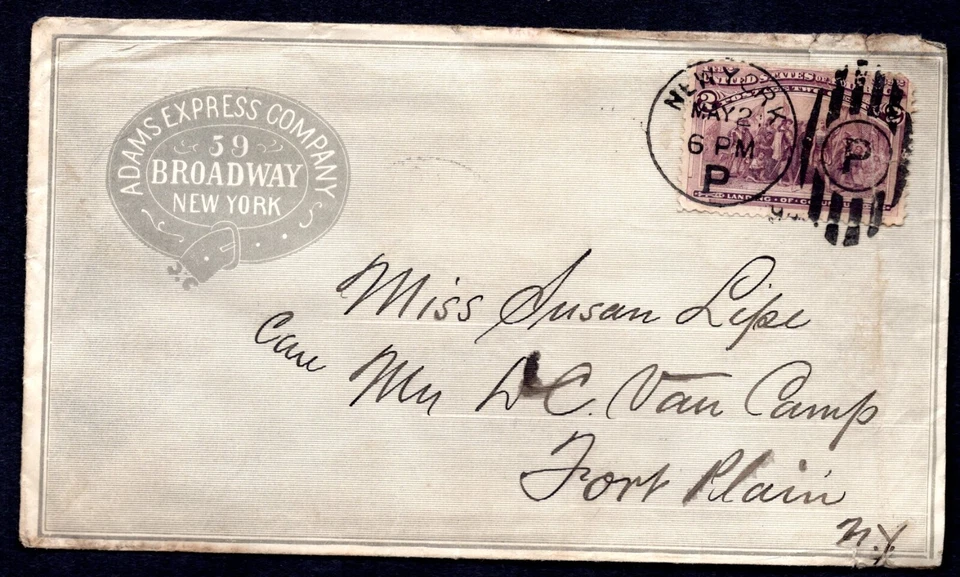 ADAMS EXPRESS COMPANY
59
BROADWAY
NEW YORK
NEW Y RK
MAY 2
6 PM
P
P
UNITED STATES OF
2
2
LANDING OF CO
Miss Susan Lipe
Care
Mr D C. Van Camp
Fort Plain
N.Y.